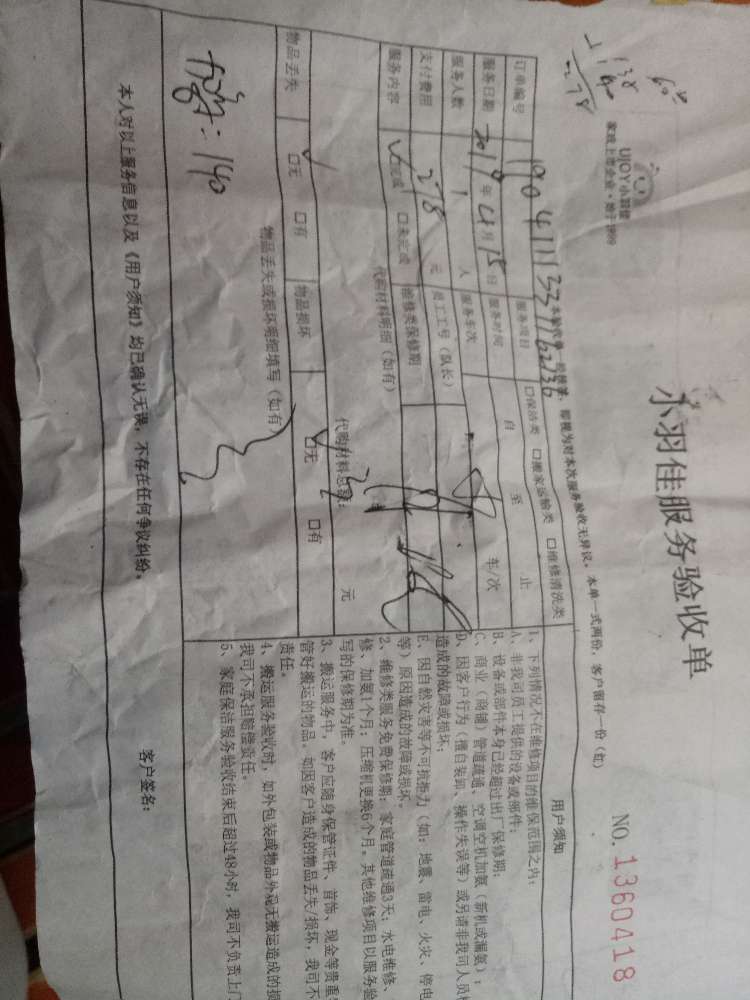 小羽佳服务验收单
UJOY小羽佳
家政上市企业·始于1999
NO. 1360418
138
140
278
本单一式两份,客户留存一份(红)
即视为对本次服务验收无异议。
订单编号
服务项目 □保洁类 □搬家运输类 □维修清洗类
服务日期 2019年4月15日 服务时间 自 至 止
服务人数 1 人 服务车次 车/次
支付费用 278 元 员工工号(队长)
服务内容 ✓完成 □未完成 维修类保修期
代购材料明细(如有)
代购材料总额: 元
物品丢失 □无 □有 物品损坏 □无 □有
物品丢失或损坏明细填写(如有)
140
本人对以上服务信息以及《用户须知》均已确认无误,不存在任何争议纠纷。
客户签名:
用户须知
1、下列情况不在维修项目的维保范围之内:
A、非我司员工提供的设备或部件;
B、设备或部件本身已经超过出厂保修期;
C、商业(商铺)管道疏通、空调空机加氨(新机或漏氨);
D、因客户行为(擅自装卸、操作失误等)或另请非我司人员
造成的故障或损坏;
E、因自然灾害等不可抗拒力(如:地震、雷电、火灾、停电
等)原因造成的故障或损坏。
2、维修类服务免费保修期:家庭管道疏通3天;水电维修、
修、加氨1个月;压缩机更换6个月。其他维修项目以服务验
写的保修期为准。
3、搬运服务中,客户应随身保管证件、首饰、现金等贵重
管好搬运的物品。如因客户造成的物品丢失/损坏,我司不
责任。
4、搬运服务验收时,如外包装或物品外观无搬运造成的损
我司不承担赔偿责任。
5、家庭保洁服务验收结束后超过48小时,我司不负责上门